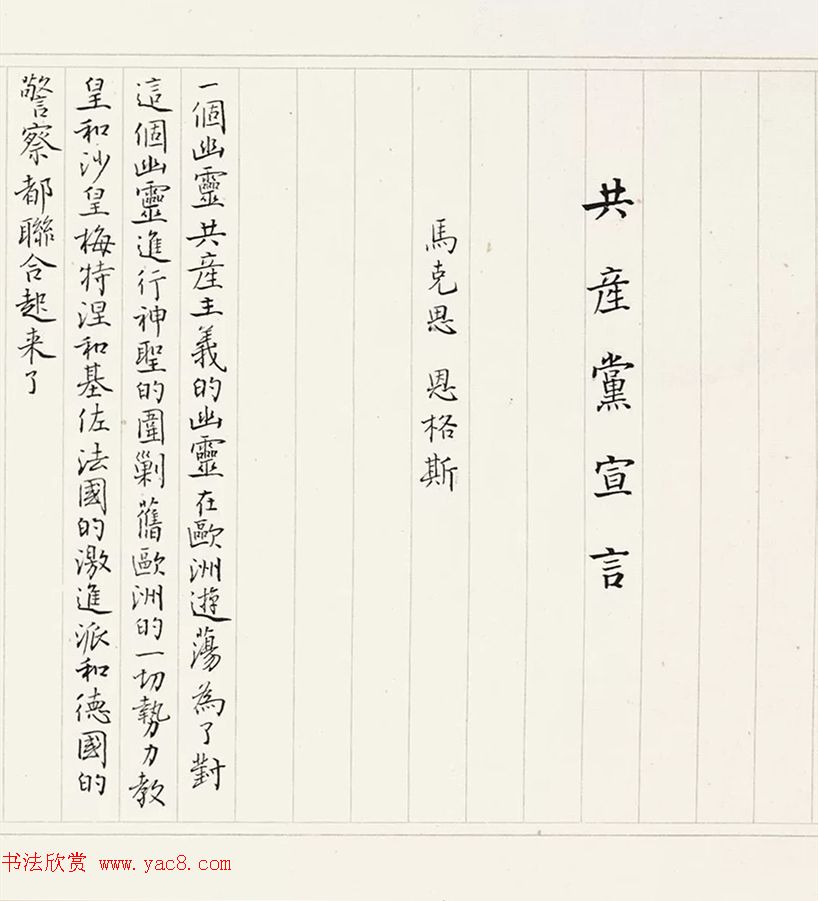 共産黨宣言
馬克思 恩格斯
一個幽靈共産主義的幽靈在歐洲遊蕩為了對
這個幽靈進行神聖的圍剿舊歐洲的一切勢力教
皇和沙皇梅特涅和基佐法國的激進派和德國的
警察都聯合起来了
书法欣赏 www.yac8.com